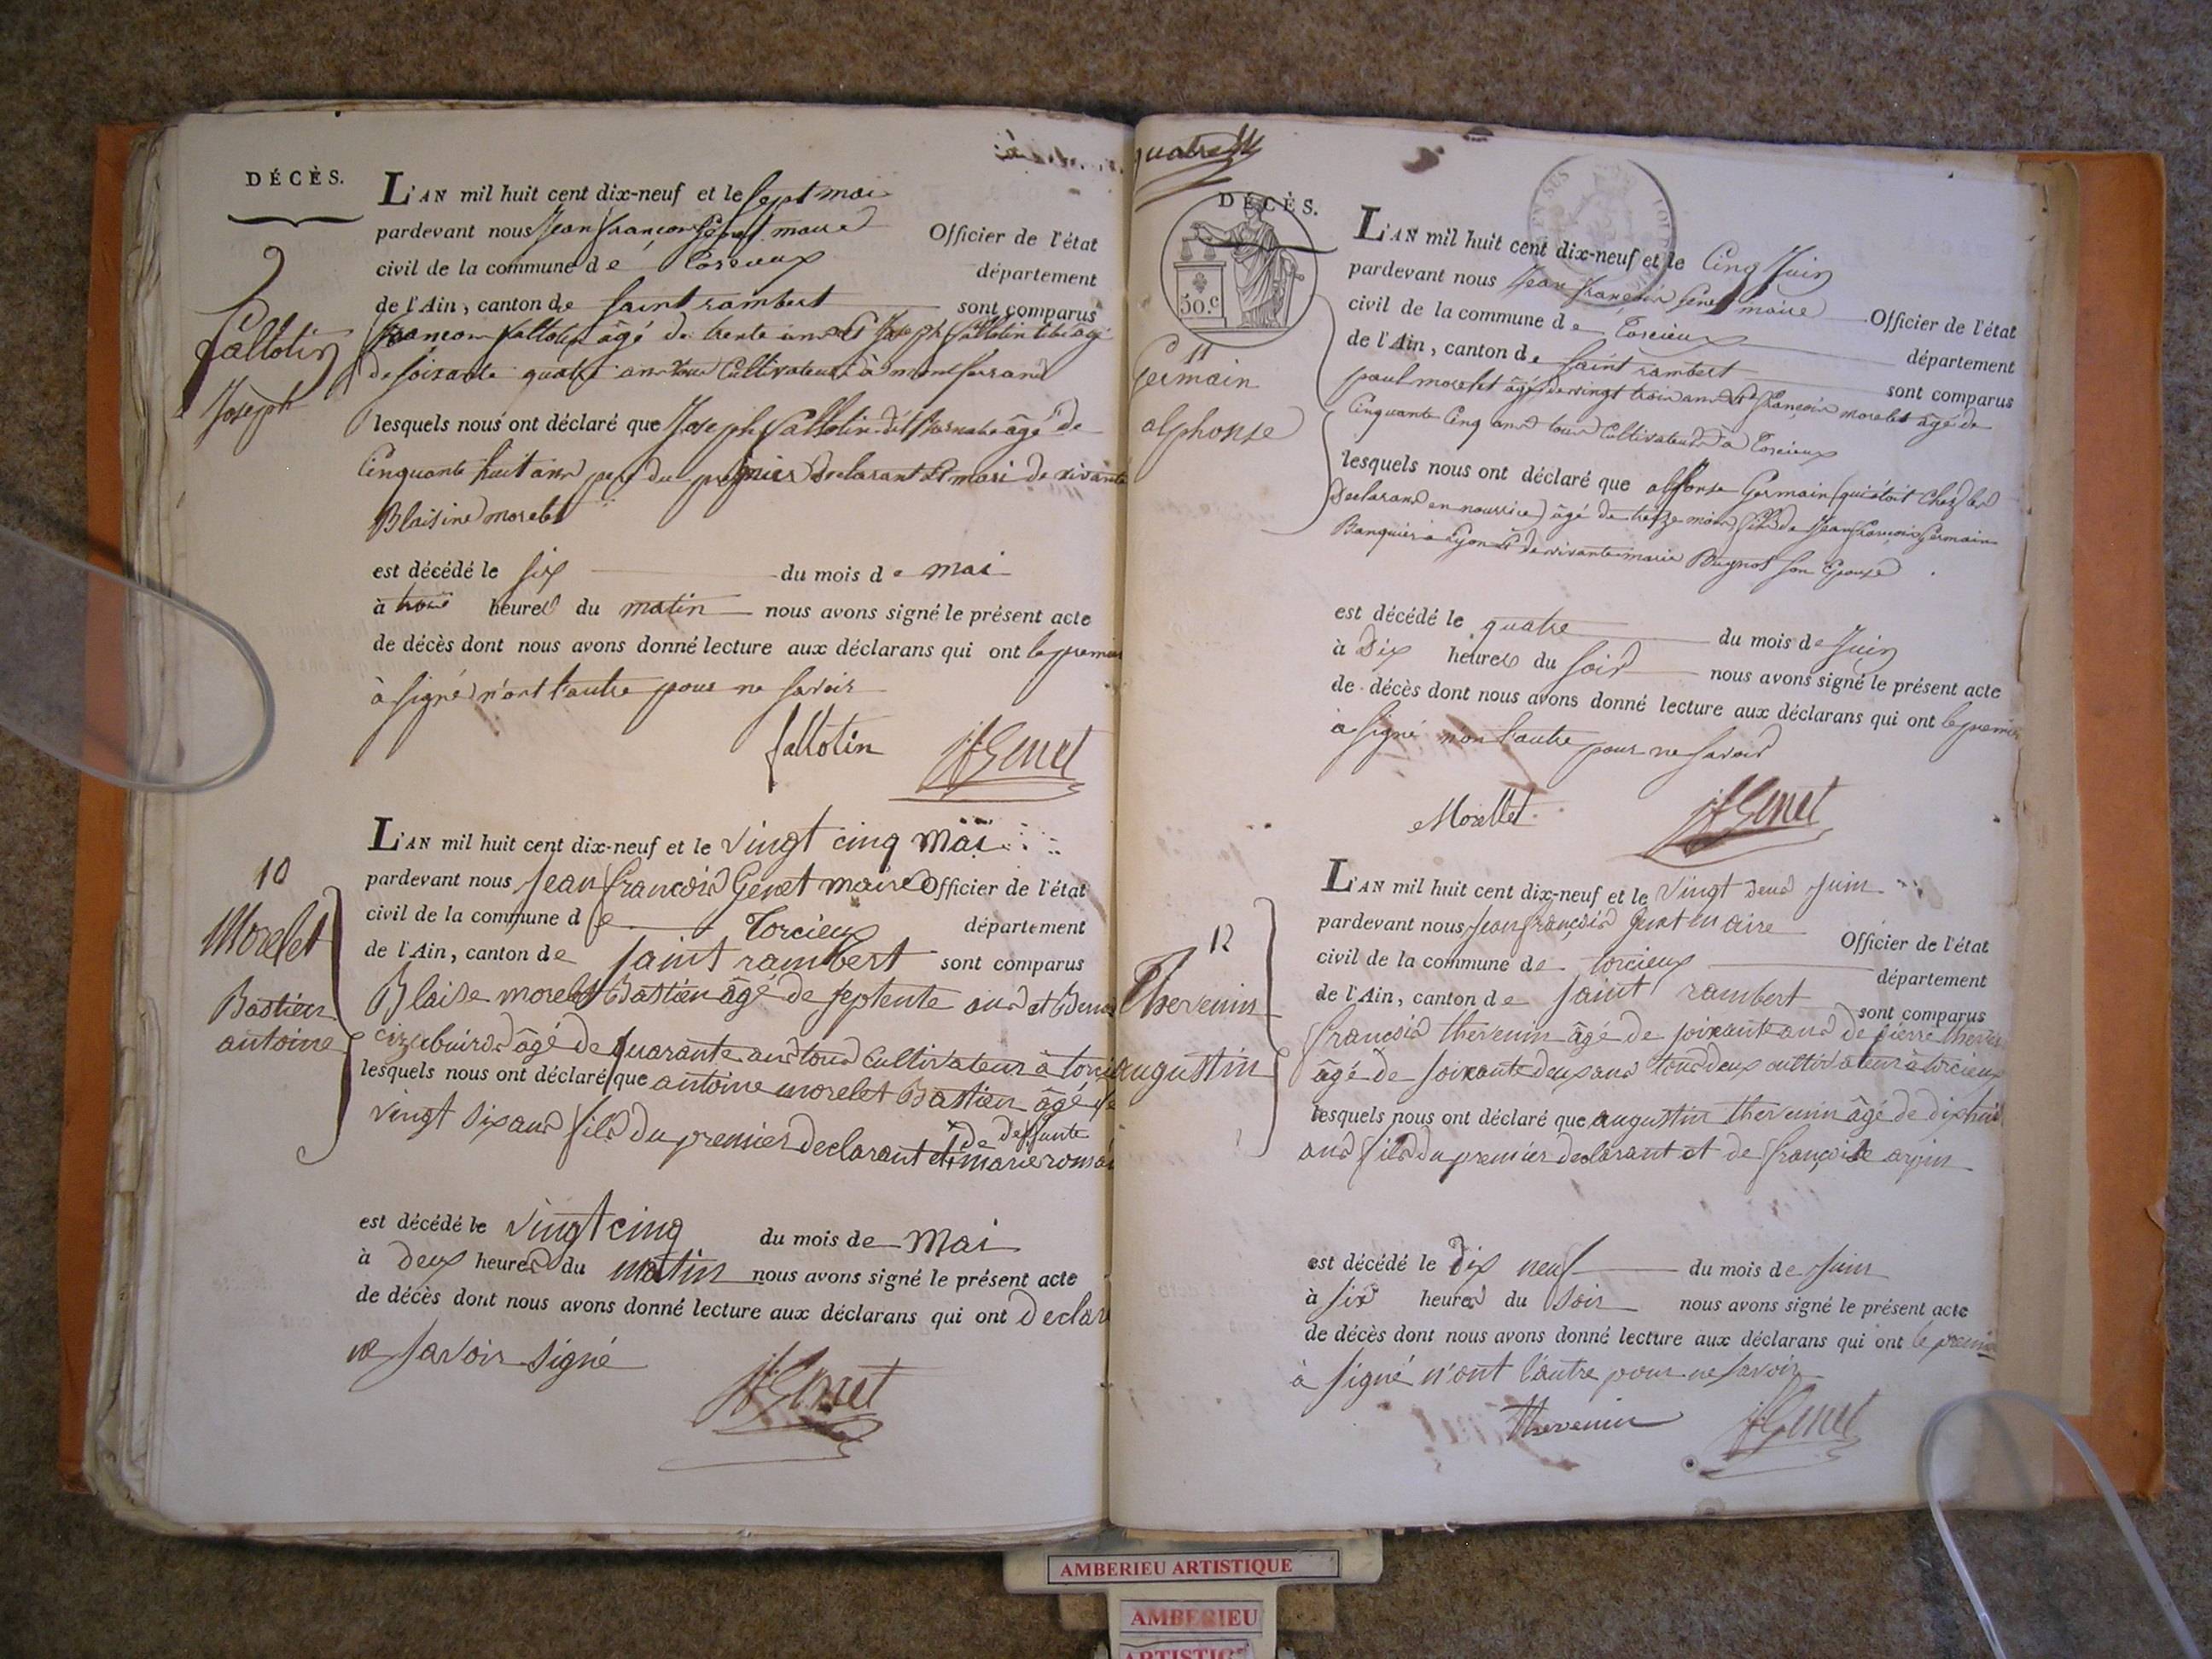 DÉCÈS.
9
Sallotin
Joseph
L'AN mil huit cent dix-neuf et le sept mai
pardevant nous Jean françois Genet maire Officier de l'état
civil de la commune de Torcieux département
de l'Ain, canton de saint rambert sont comparus
françois sallotin âgé de trente ans et Joseph sallotin âgé
de soixante quatre ans tous Cultivateurs à montferrand
lesquels nous ont déclaré que Joseph Sallotin dit âgé de
Cinquante huit ans pere du premier declarant et mari de vivante
Blaisine morelet
est décédé le six du mois de mai
à trois heures du matin nous avons signé le présent acte
de décès dont nous avons donné lecture aux déclarans qui ont le premier
à signé n'ont l'autre pour ne savoir
sallotin JfGenet
10
Morelet
Bastien
antoine
L'AN mil huit cent dix-neuf et le vingt cinq mai
pardevant nous jean françois Genet maire Officier de l'état
civil de la commune de Torcieux département
de l'Ain, canton de saint rambert sont comparus
Blaise morelet Bastien âgé de septente ans et
âgé de quarante ans tous cultivateur à
lesquels nous ont déclaré que antoine morelet Bastien âgé de
vingt six ans fils du premier declarant et de deffunte marie
est décédé le vingt cinq du mois de mai
à deux heures du matin nous avons signé le présent acte
de décès dont nous avons donné lecture aux déclarans qui ont declar
ne savoir signé
JfGenet
quatre
DÉCÈS.
50.c
11
Germain
alphonse
L'AN mil huit cent dix-neuf et le Cinq Juin
pardevant nous Jean françois Genet maire Officier de l'état
civil de la commune de Torcieux département
de l'Ain, canton de saint rambert sont comparus
paul morelet âgé de vingt trois ans et françois morelet âgé de
Cinquante Cinq ans tous Cultivateurs à Torcieux
lesquels nous ont déclaré que alfonse Germain (qui étoit Chez les
declarans en nourrice) âgé de treize mois fils de Jean françois Germain
Banquier à Lyon et de vivante marie Bugnot son Epouse
est décédé le quatre du mois de Juin
à dix heures du soir nous avons signé le présent acte
de décès dont nous avons donné lecture aux déclarans qui ont le premier
à signé non l'autre pour ne savoir
Morellet JfGenet
12
Thevenin
augustin
L'AN mil huit cent dix-neuf et le vingt deux juin
pardevant nous jean françois Genet maire Officier de l'état
civil de la commune de torcieux département
de l'Ain, canton de saint rambert sont comparus
françois thevenin âgé de soixante ans de pierre
âgé de soixante deux ans tous deux cultivateur à torcieux
lesquels nous ont déclaré que augustin thevenin âgé de dix huit
ans fils du premier declarant et de françoise
est décédé le dix neuf du mois de juin
à six heures du soir nous avons signé le présent acte
de décès dont nous avons donné lecture aux déclarans qui ont le premier
à signé n'ont l'autre pour ne savoir
thevenin JfGenet
AMBERIEU ARTISTIQUE
AMBERIEU